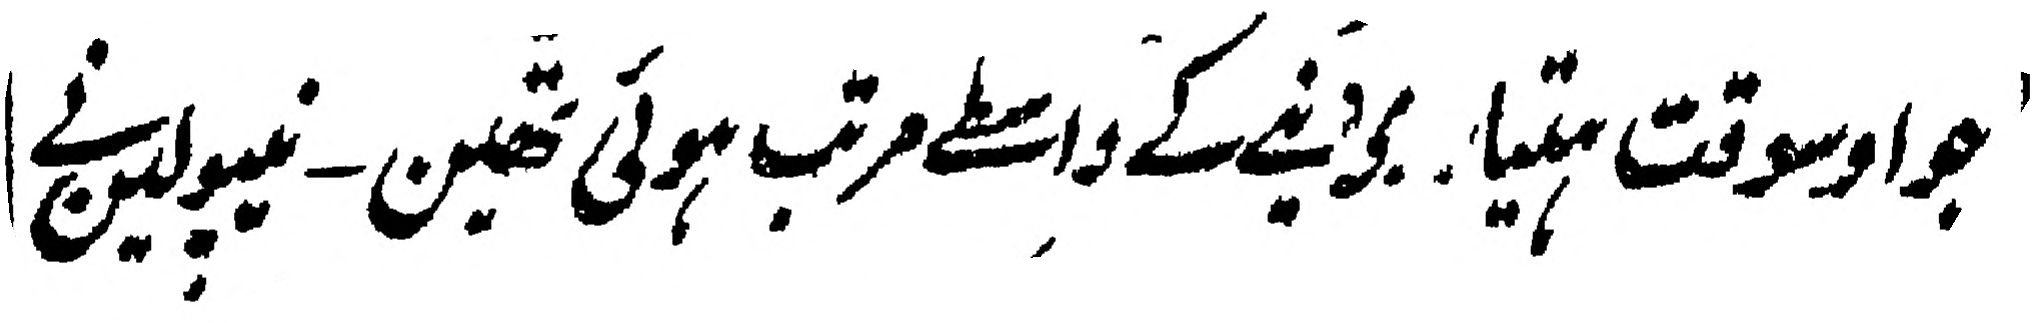 جو اوسوقت ہتیار بونے کے واسطے مرتب ہوئی تھین - نیپولین نے